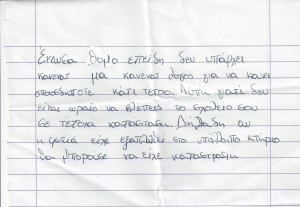 Ένιωσα θυμό επειδή δεν υπάρχει
κανένας μα κανένας λόγος για να κάνει
οποιοσδήποτε κάτι τέτοιο. Λύπη γιατί δεν
είναι ωραίο να βλέπεις το σχολείο σου
σε τέτοια κατάσταση. Δηλαδή αν
η φωτιά είχε εξαπλωθεί στο υπόλοιπο κτήριο
θα μπορούσε να είχε καταστραφεί